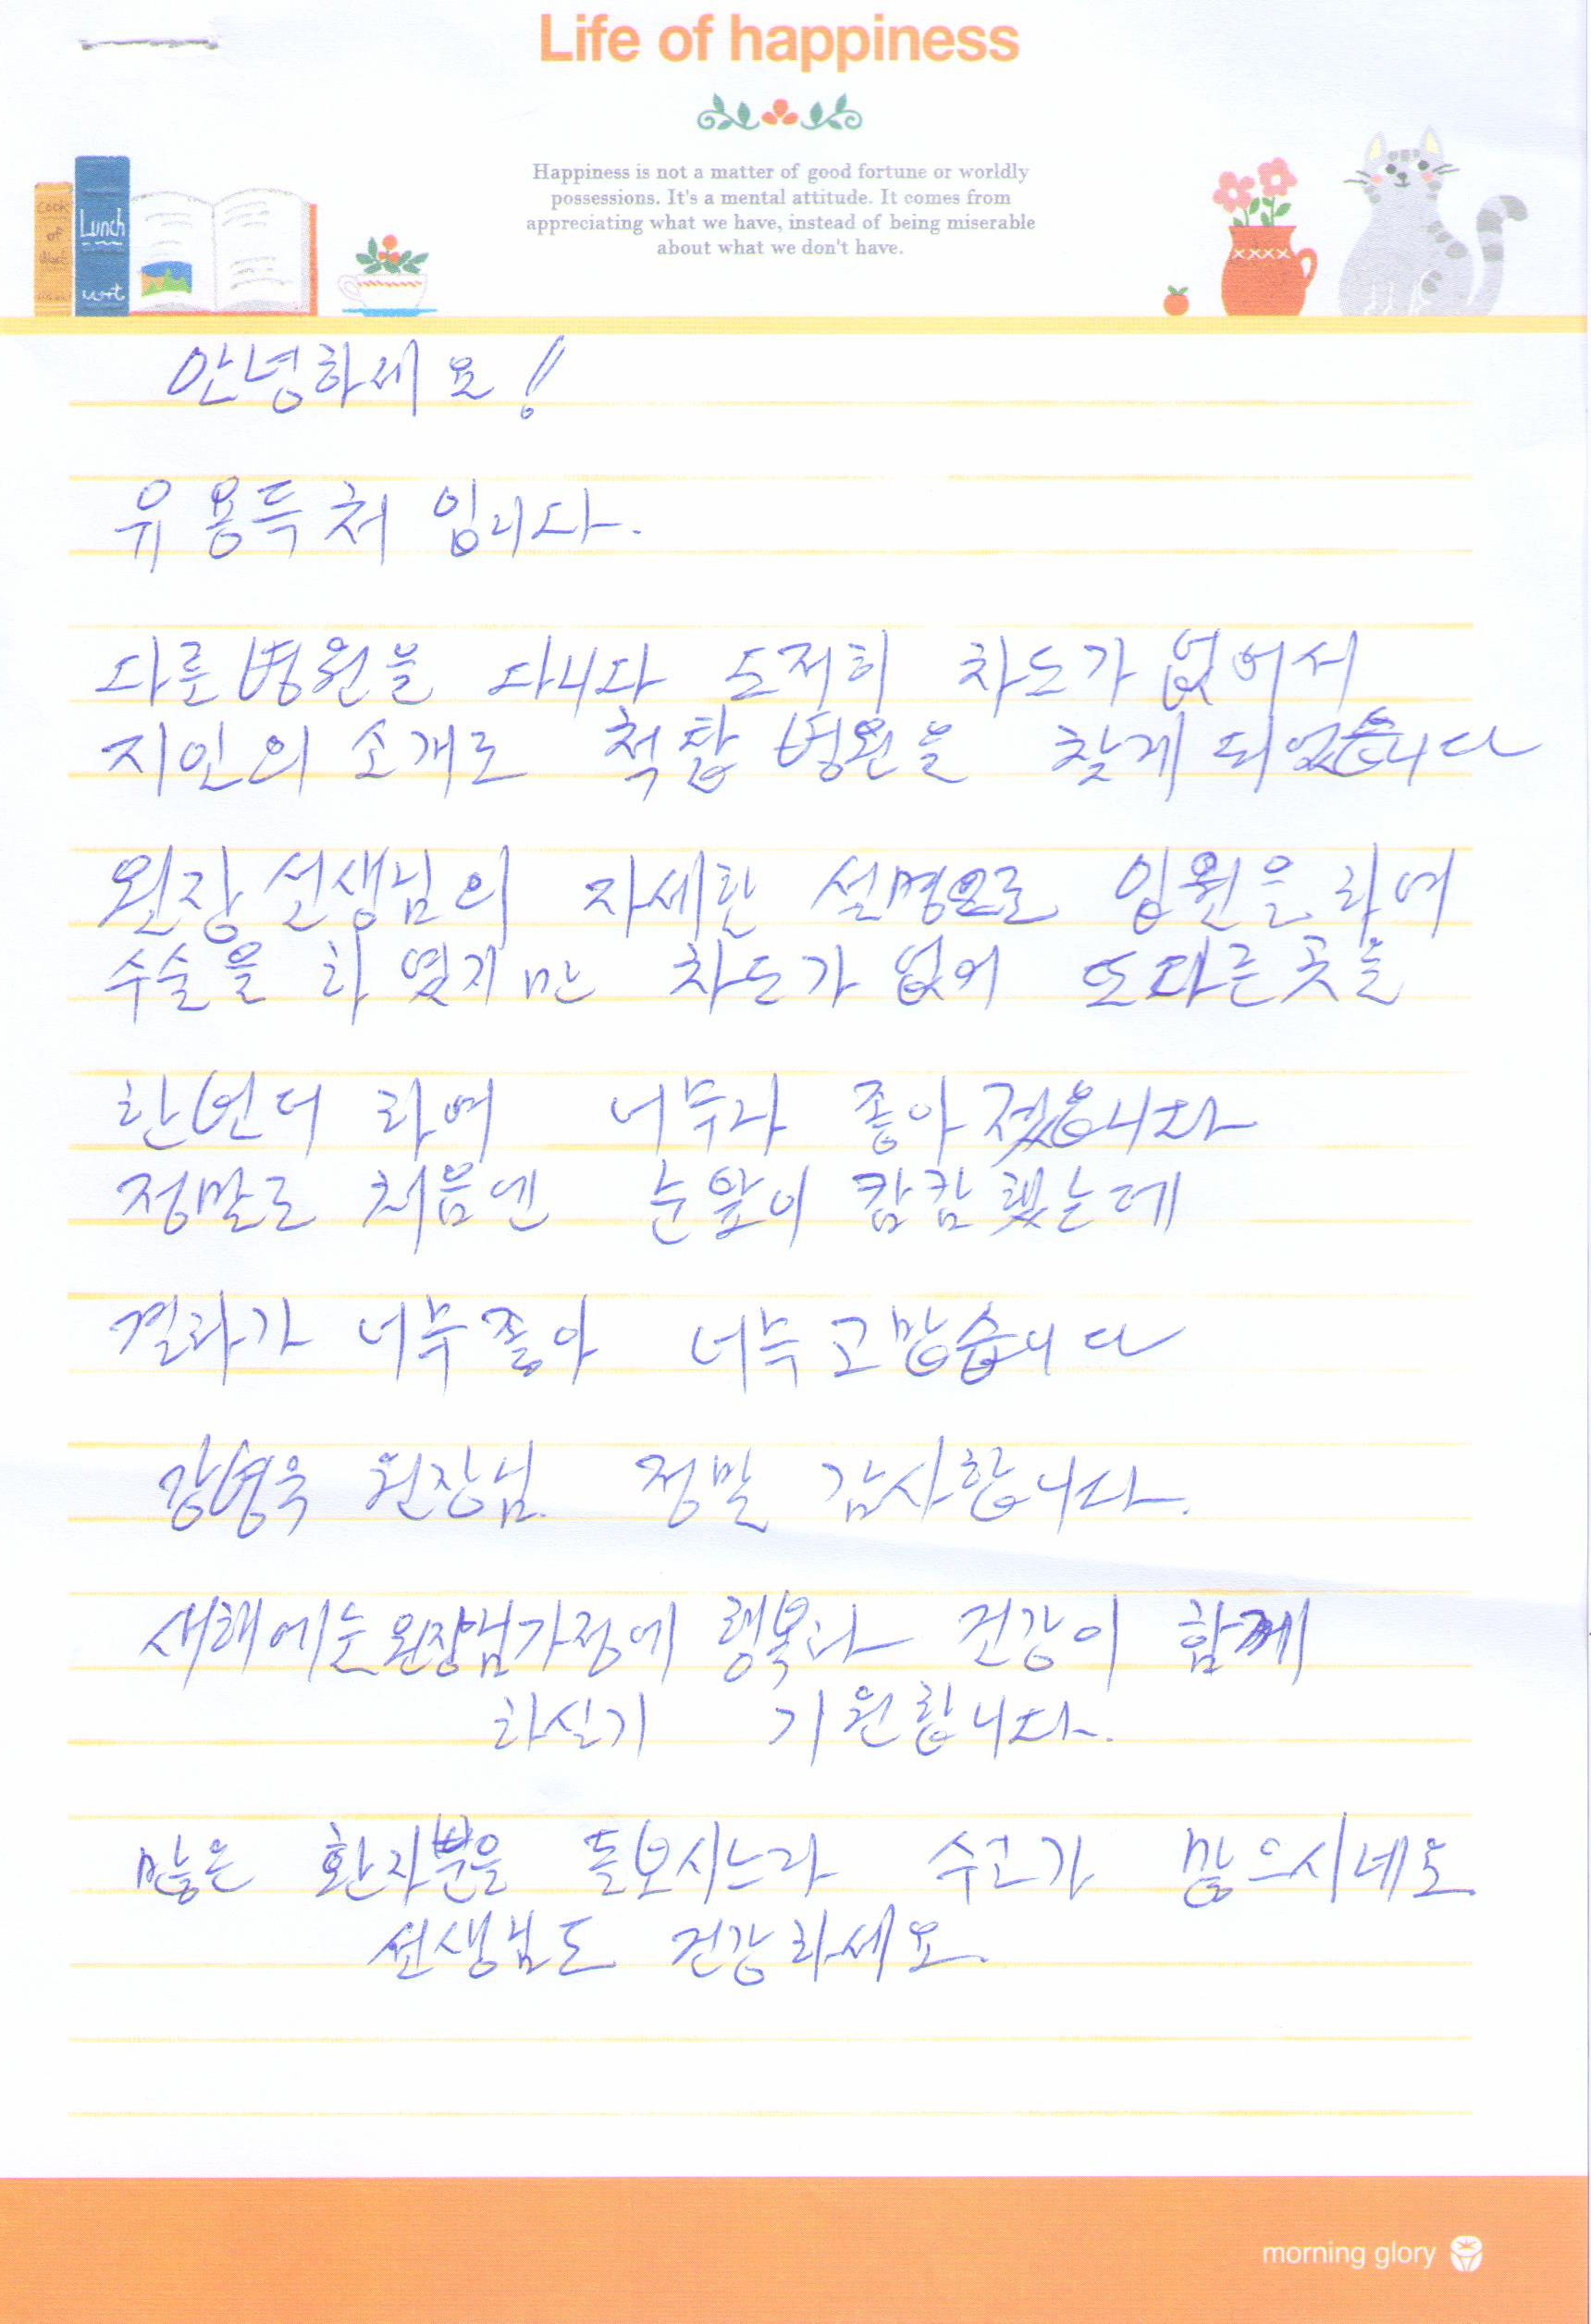 Life of happiness
Happiness is not a matter of good fortune or worldly
possessions. It's a mental attitude. It comes from
appreciating what we have, instead of being miserable
about what we don't have.
Lunch
안녕하세요!
유용득처 입니다.
다른병원을 다니다 도저히 차도가 없어서
지인의 소개로 척탑 병원을 찾게 되었습니다
원장 선생님의 자세한 설명으로 입원을 하여
수술을 하였지만 차도가 없어 또다른곳을
한번더 하여 너무나 좋아졌습니다
정말로 처음엔 눈앞이 캄캄했는데
결과가 너무좋아 너무고맙습니다
강병욱 원장님. 정말 감사합니다.
새해에는원장님가정에 행복과 건강이 함께
하실기 기원합니다.
많은 환자분을 돌보시느라 수고가 많으시네요
선생님도 건강하세요.
morning glory